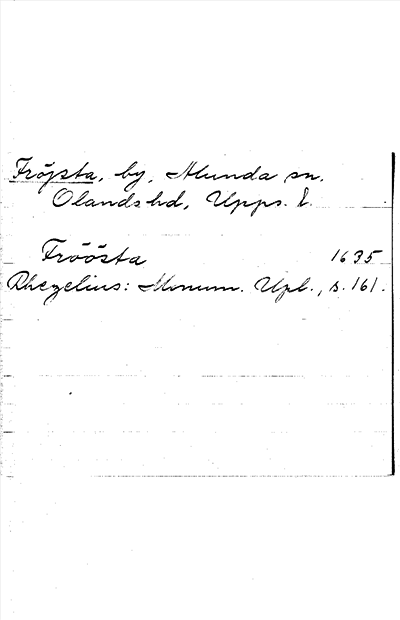 Fröjsta, by, Alunda sn.
Olands hd, Upps. l.
Fröösta 1635
Rhezelius: Monum. Upl., s. 161.